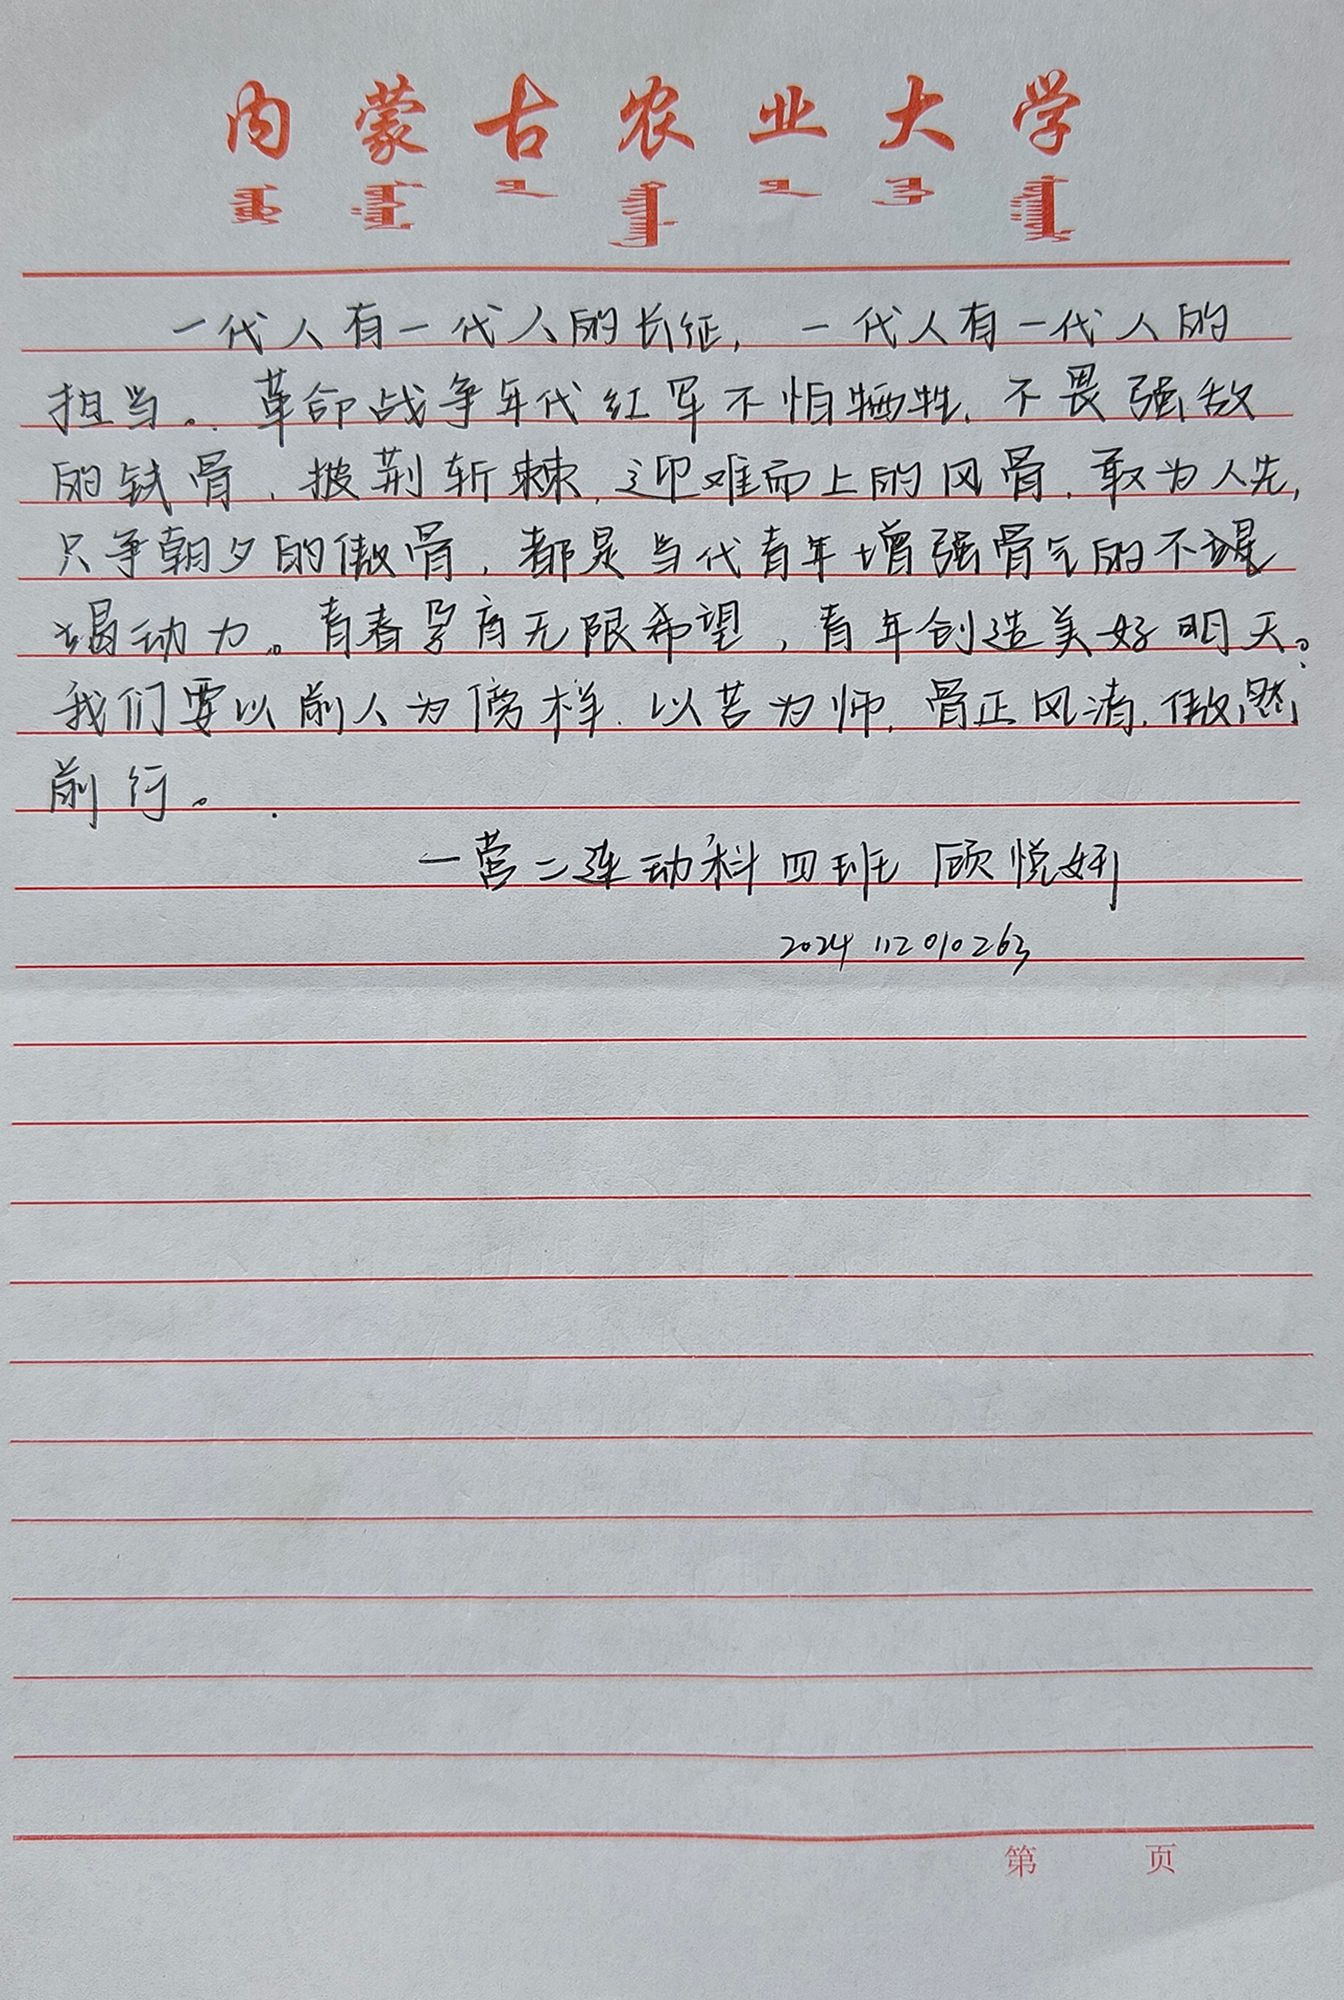 内蒙古农业大学
一代人有一代人的长征，一代人有一代人的
担当。革命战争年代红军不怕牺牲、不畏强敌
的铁骨，披荆斩棘、迎难而上的风骨，敢为人先，
只争朝夕的傲骨，都是当代青年增强骨气的不竭
动力。青春孕育无限希望，青年创造美好明天。
我们要以前人为榜样，以苦为师，骨正风清，傲然
前行。
一营二连动科四班 顾悦妍
2024 112010263
第 页